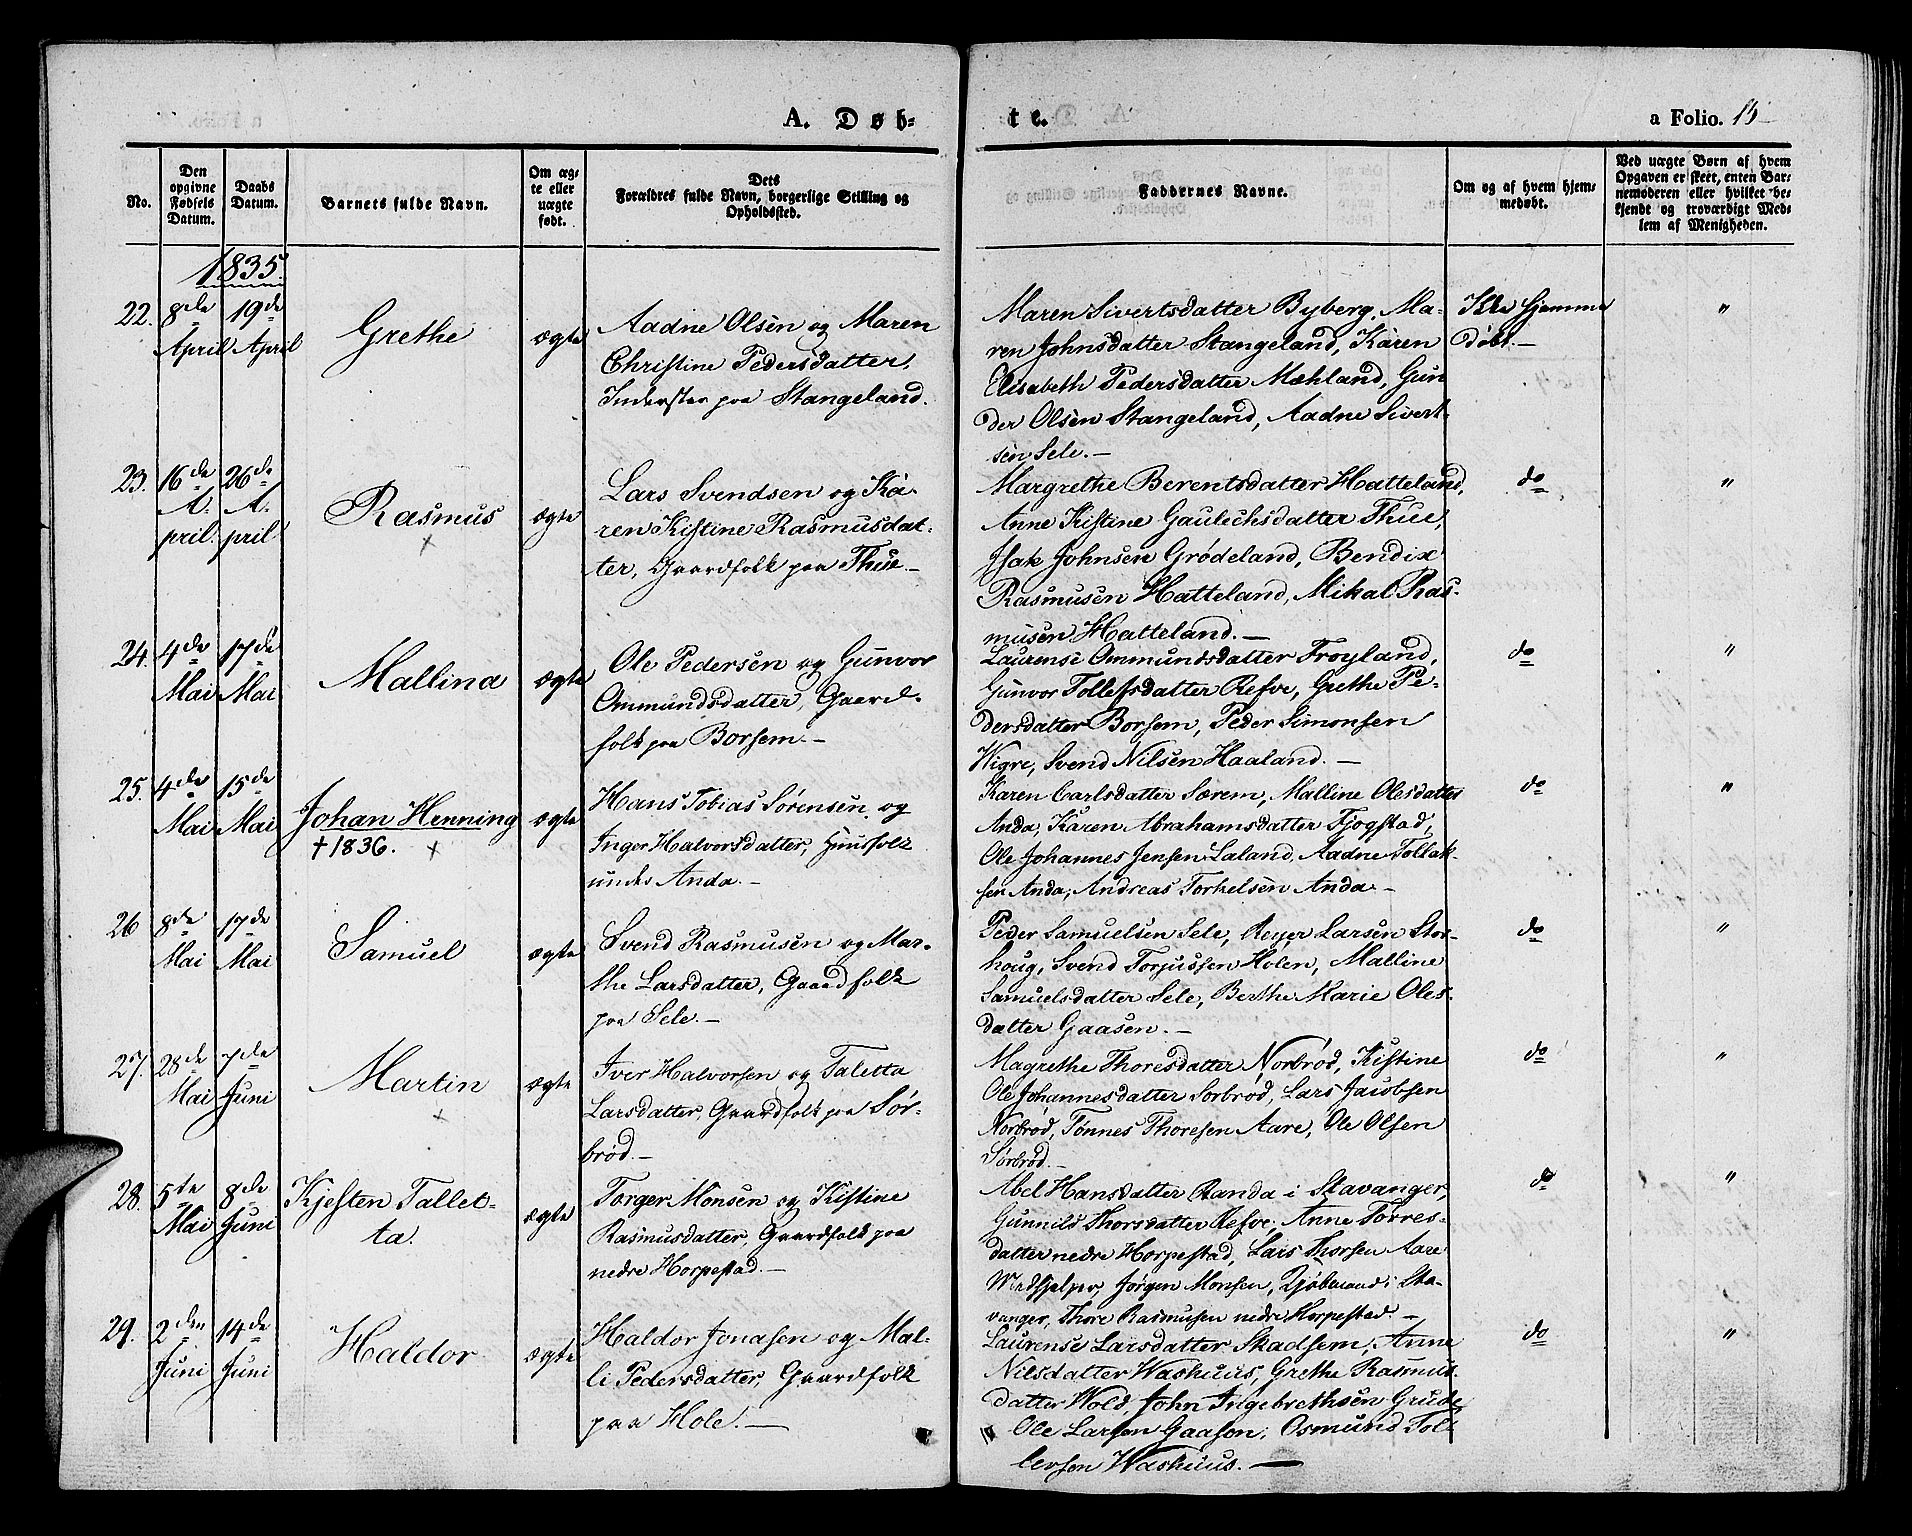 A. Døb-
te.
a Folio. 15
No.
Den
opgivne
Fødsels
Datum.
Daabs
Datum.
Barnets fulde Navn.
Om æg-
te eller
uægte
født.
Dets
Forældres fulde Navn, borgerlige Stilling og
Opholdssted.
Faddernes Navne.
Om og af hvem hjem-
medøbt.
Ved uægte Børn af hvem
Opgaven er skeet, enten Bar-
nemoderen eller hvilket be-
kjendt og troværdigt Med-
lem af Menigheden.
1835.
22.
8de
April
19de
April
Grethe
ægte
Aadne Olsen og Maren
Christine Pedersdatter,
Inderster paa Stangeland.
Maren Sivertsdatter Byberg, Ma-
ren Johnsdatter Stangeland, Karen
Elisabeth Pedersdatter Mæhland, Gun
der Olsen Stangeland, Aadne Sivert-
sen Sele.-
Ikke hjemme
døbt.-
"
23.
16de
A-
pril.
26de
A-
pril
Rasmus
ægte
Lars Svendsen og Ka-
ren Kistine Rasmusdat-
ter, Gaardfolk paa Thue.-
Margrethe Berentsdatter Hatteland,
Anne Kistine Gaulechsdatter Thue,
Isak Johnsen Grødeland, Bendix
Rasmusen Hatteland, Mikal Ras-
musen Hatteland.-
do
"
24.
4de
Mai
17de
Mai
Mallina
ægte
Ole Pedersen og Gunvor
Ommundsdatter, Gaard-
folk paa Borsem.-
Laurense Ommundsdatter Frøyland,
Gunvor Tollefsdatter Refve, Grethe Pe-
dersdatter Borsem, Peder Simonsen
Wigre, Svend Nilsen Haaland.-
do
"
25.
4de
Mai
15de
Mai
Johan Henning
† 1836.
ægte
Hans Tobias Sørensen og
Inger Halvorsdatter, Huusfolk
under Anda.-
Karen Carlsdatter Særem, Malline Olesdatter
Anda, Karen Abrahamsdatter Fjogstad,
Ole Johannes Jensen Laland, Aadne Tollak-
sen Anda, Andreas Torkelsen Anda-
do
"
26
8de
Mai
17de
Mai
Samuel
ægte
Svend Rasmusen og Mar-
the Larsdatter, Gaardfolk
paa Sele.-
Peder Samuelsen Sele, Reyer Larsen Stor-
houg, Svend Torjussen Holen, Malline
Samuelsdatter Sele, Berthe Marie Oles-
datter Gaasen.-
do
"
27.
28de
Mai
7de
Juni
Martin
ægte
Iver Halvorsen og Taletta
Larsdatter, Gaardfolk paa Sør-
brød.-
Magrethe Thoresdatter Norbrød, Kistine
Ole Johannesdatter Sorbrød, Lars Jacobsen
Norbrød, Tønnes Thoresen Aare, Ole Olsen
Sørbrød.-
do
"
28.
5te
Mai
8de
Juni
Kjesten Tallet-
ta.
ægte
Torger Monsen og Kistine
Rasmusdatter, Gaardfolk paa
nedre Horpestad.-
Abel Hansdatter Randa i Stavanger,
Gunnild Thorsdatter Refve, Anne Torres-
datter nedre Horpestad, Lars Thorsen Aare
Medhjelper, Jørgen Monsen, Kjøbmand i Sta-
vanger, Thore Rasmusen nedre Horpestad.-
do
"
29.
2den
Juni
14de
Juni
Haldor
ægte
Haldor Jonasen og Mal-
li Pedersdatter, Gaardfolk
paa Hole.-
Laurense Larsdatter Skadsem, Anne
Nilsdatter Washuus, Grethe Rasmus-
datter Wold, John Ingebrethsen Grude,
Ole Larsen Gaasen, Osmund Tol-
levsen Washuus.-
do
"